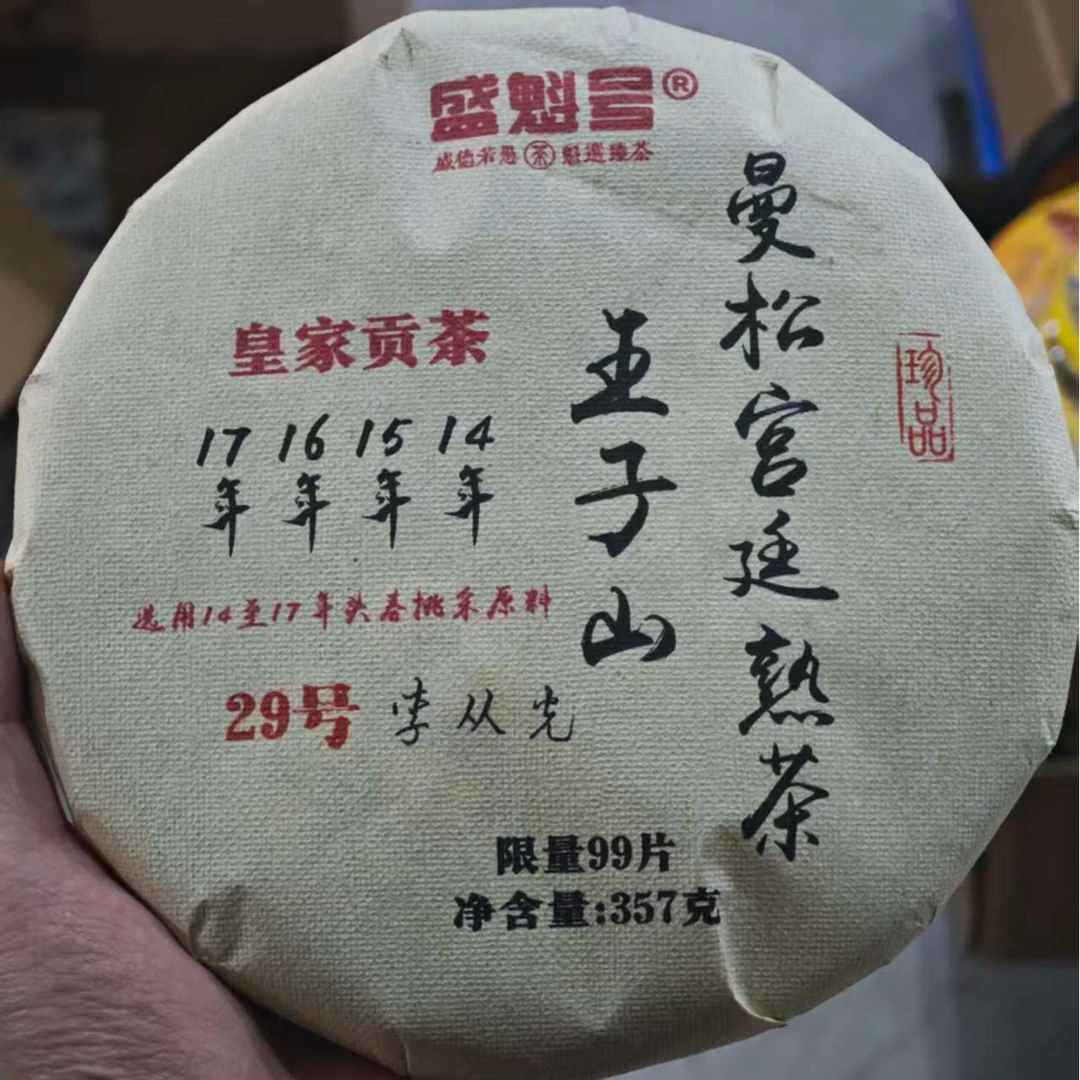 盛魁号®
盛德若愚 茶 魁選臻茶
曼松宫廷熟茶
珍品
王子山
皇家贡茶
17年 16年 15年 14年
选用14至17年头春挑采原料
29号 李从光
限量99片
净含量:357克